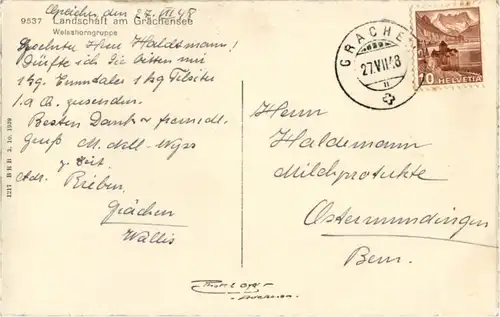 9537 Landschaft am Grächensee
Weisshorngruppe
den 27.VII.48
Geehrter Herr Haldemann!
Dürfte ich Sie bitten mir
1 kg. Emmentaler 1 kg Tilsiter
I.a Q. zusenden.
Besten Dank & freundl.
Gruß M. Wyss
z. Zeit.
Adr. Rieben.
Grächen
Wallis
1217 BRB 2. 10. 1939
GRÄCHEN
27.VII.48
70 HELVETIA
Herrn
Haldemann
Milchprodukte
Ostermundingen
Bern.